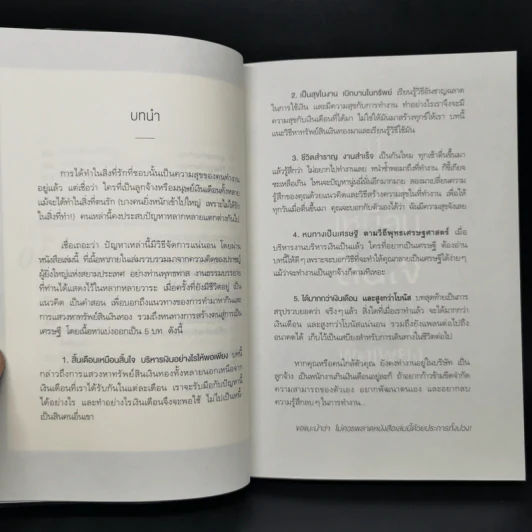 บทนำ
การได้ทำในสิ่งที่รักที่ชอบนั้นเป็นความสุขของคนทำงาน
อยู่แล้ว แต่เชื่อว่า ใครที่เป็นลูกจ้างหรือมนุษย์เงินเดือนทั้งหลาย
แม้จะได้ทำในสิ่งที่ตนรัก (บางคนยิ่งหนักเข้าไปใหญ่ เพราะไม่ได้รัก
ในสิ่งที่ทำ) คนเหล่านี้คงประสบปัญหามากหลายแตกต่างกันไป
เชื่อเถอะว่า ปัญหาเหล่านี้มีวิธีจัดการแน่นอน โดยผ่าน
หนังสือเล่มนี้ ที่เนื้อหาภายในเล่มรวบรวมมาจากความคิดของปราชญ์
ผู้ยิ่งใหญ่แห่งสยามประเทศ อย่างท่านพุทธทาส งานธรรมบรรยาย
ที่ท่านได้แสดงไว้หลากหลายวาระ เมื่อครั้งที่ยังมีชีวิตอยู่ เป็น
แนวคิด เป็นคำสอน เพื่อบอกถึงแนวทางของการทำมาหากินและ
การแสวงหาทรัพย์สินเงินทอง รวมถึงหนทางการสร้างตนสู่การเป็น
เศรษฐี โดยเนื้อหาแบ่งออกเป็น 5 บท ดังนี้
1. สิ้นเดือนเหมือนสิ้นใจ บริหารเงินอย่างไรให้พอเพียง บทนี้
กล่าวถึงการแสวงหาทรัพย์สินเงินทองทั้งหลายนอกเหนือจาก
เงินเดือนที่เราได้รับกันในแต่ละเดือน เราจะรับมือกับปัญหานี้
ได้อย่างไร และทำอย่างไรเงินเดือนจึงจะพอใช้ ไม่ไปเป็นหนี้
เป็นสินคนอื่นเขา
2. เป็นสุขในงาน เบิกบานในทรัพย์ เรียนรู้วิธีอันชาญฉลาด
ในการใช้เงิน และมีความสุขกับการทำงาน ทำอย่างไรเราจึงจะมี
ความสุขกับเงินเดือนที่ได้มา ไม่ใช่ให้มันมาสร้างทุกข์ให้เรา บทนี้
แนะวิธีหาทรัพย์สินเงินทองมาและเรียนรู้วิธีใช้มัน
3. ชีวิตสำราญ งานสำเร็จ เป็นกันไหม ทุกเช้าตื่นขึ้นมา
แล้วรู้สึกว่า ไม่อยากไปทำงานเลย
จะเหลือเกิน ไหนจะปัญหาจุ๊มจิ๊มอีกมากมาย ลองมาเปลี่ยนความ
รู้สึกของคุณด้วยแนวคิดและวิธีสร้างความสุขในการทำงาน เพื่อให้
ทุกวันเมื่อตื่นขึ้นมา คุณจะบอกกับตัวเองได้ว่า ฉันมีความสุขจังเลย
4. หนทางเป็นเศรษฐี ตามวิธีพุทธเศรษฐศาสตร์ เมื่อ
บริหารงานบริหารเงินเป็นแล้ว ใครที่อยากเป็นเศรษฐี ต้องอ่าน
บทนี้ให้ดีๆ เพราะจะบอกวิธีที่จะทำให้คุณกลายเป็นเศรษฐีได้ง่ายๆ
แม้ว่าจะทำงานเป็นลูกจ้างก็ตามทีเหอะ
5. ได้มากกว่าเงินเดือน และสูงกว่าโบนัส บทสุดท้ายเป็นการ
สรุปรวบยอดว่า จริงๆ แล้ว สิ่งใดที่เมื่อเราทำแล้ว จะได้มากกว่า
เงินเดือน และสูงกว่าโบนัสแน่นอน รวมถึงยังแพลนต่อไปถึง
อนาคตได้ เก็บไว้เป็นเสบียงสำหรับการเดินทางในชีวิตต่อไป
หากคุณหรือคนใกล้ตัวคุณ ยังคงทำงานอยู่ในบริษัท เป็น
ลูกจ้าง เป็นพนักงานกินเงินเดือนอยู่ละก็ ถ้าอยากก้าวข้ามขีดจำกัด
ความสามารถของตัวเอง อยากพัฒนาตนเอง และอยากสลบ
ความรู้สึกลบๆ ในการทำงาน
ขอแนะนำว่า ไม่ควรพลาดหนังสือเล่มนี้ด้วยประการทั้งปวง!